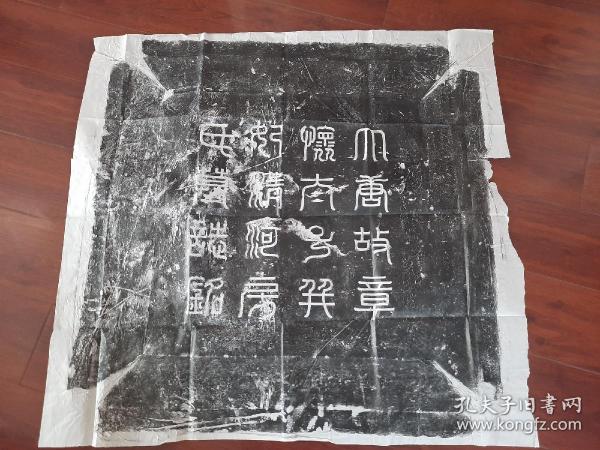 大唐故章
懷太子并
妃清河房
氏墓誌銘
孔夫子旧書网
kongfz.com